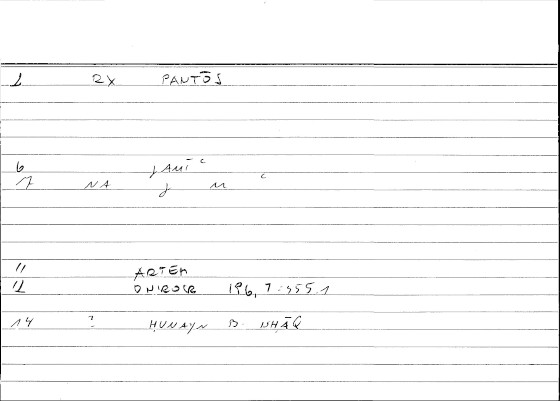 1 2X PANTŌS
6 ǧAMĪʿ
7 NA ǧ M ʿ
11 ARTEM
12 ONIROCR 196, 7 : 355.1
14 ? ḤUNAYN B. ISḤĀQ